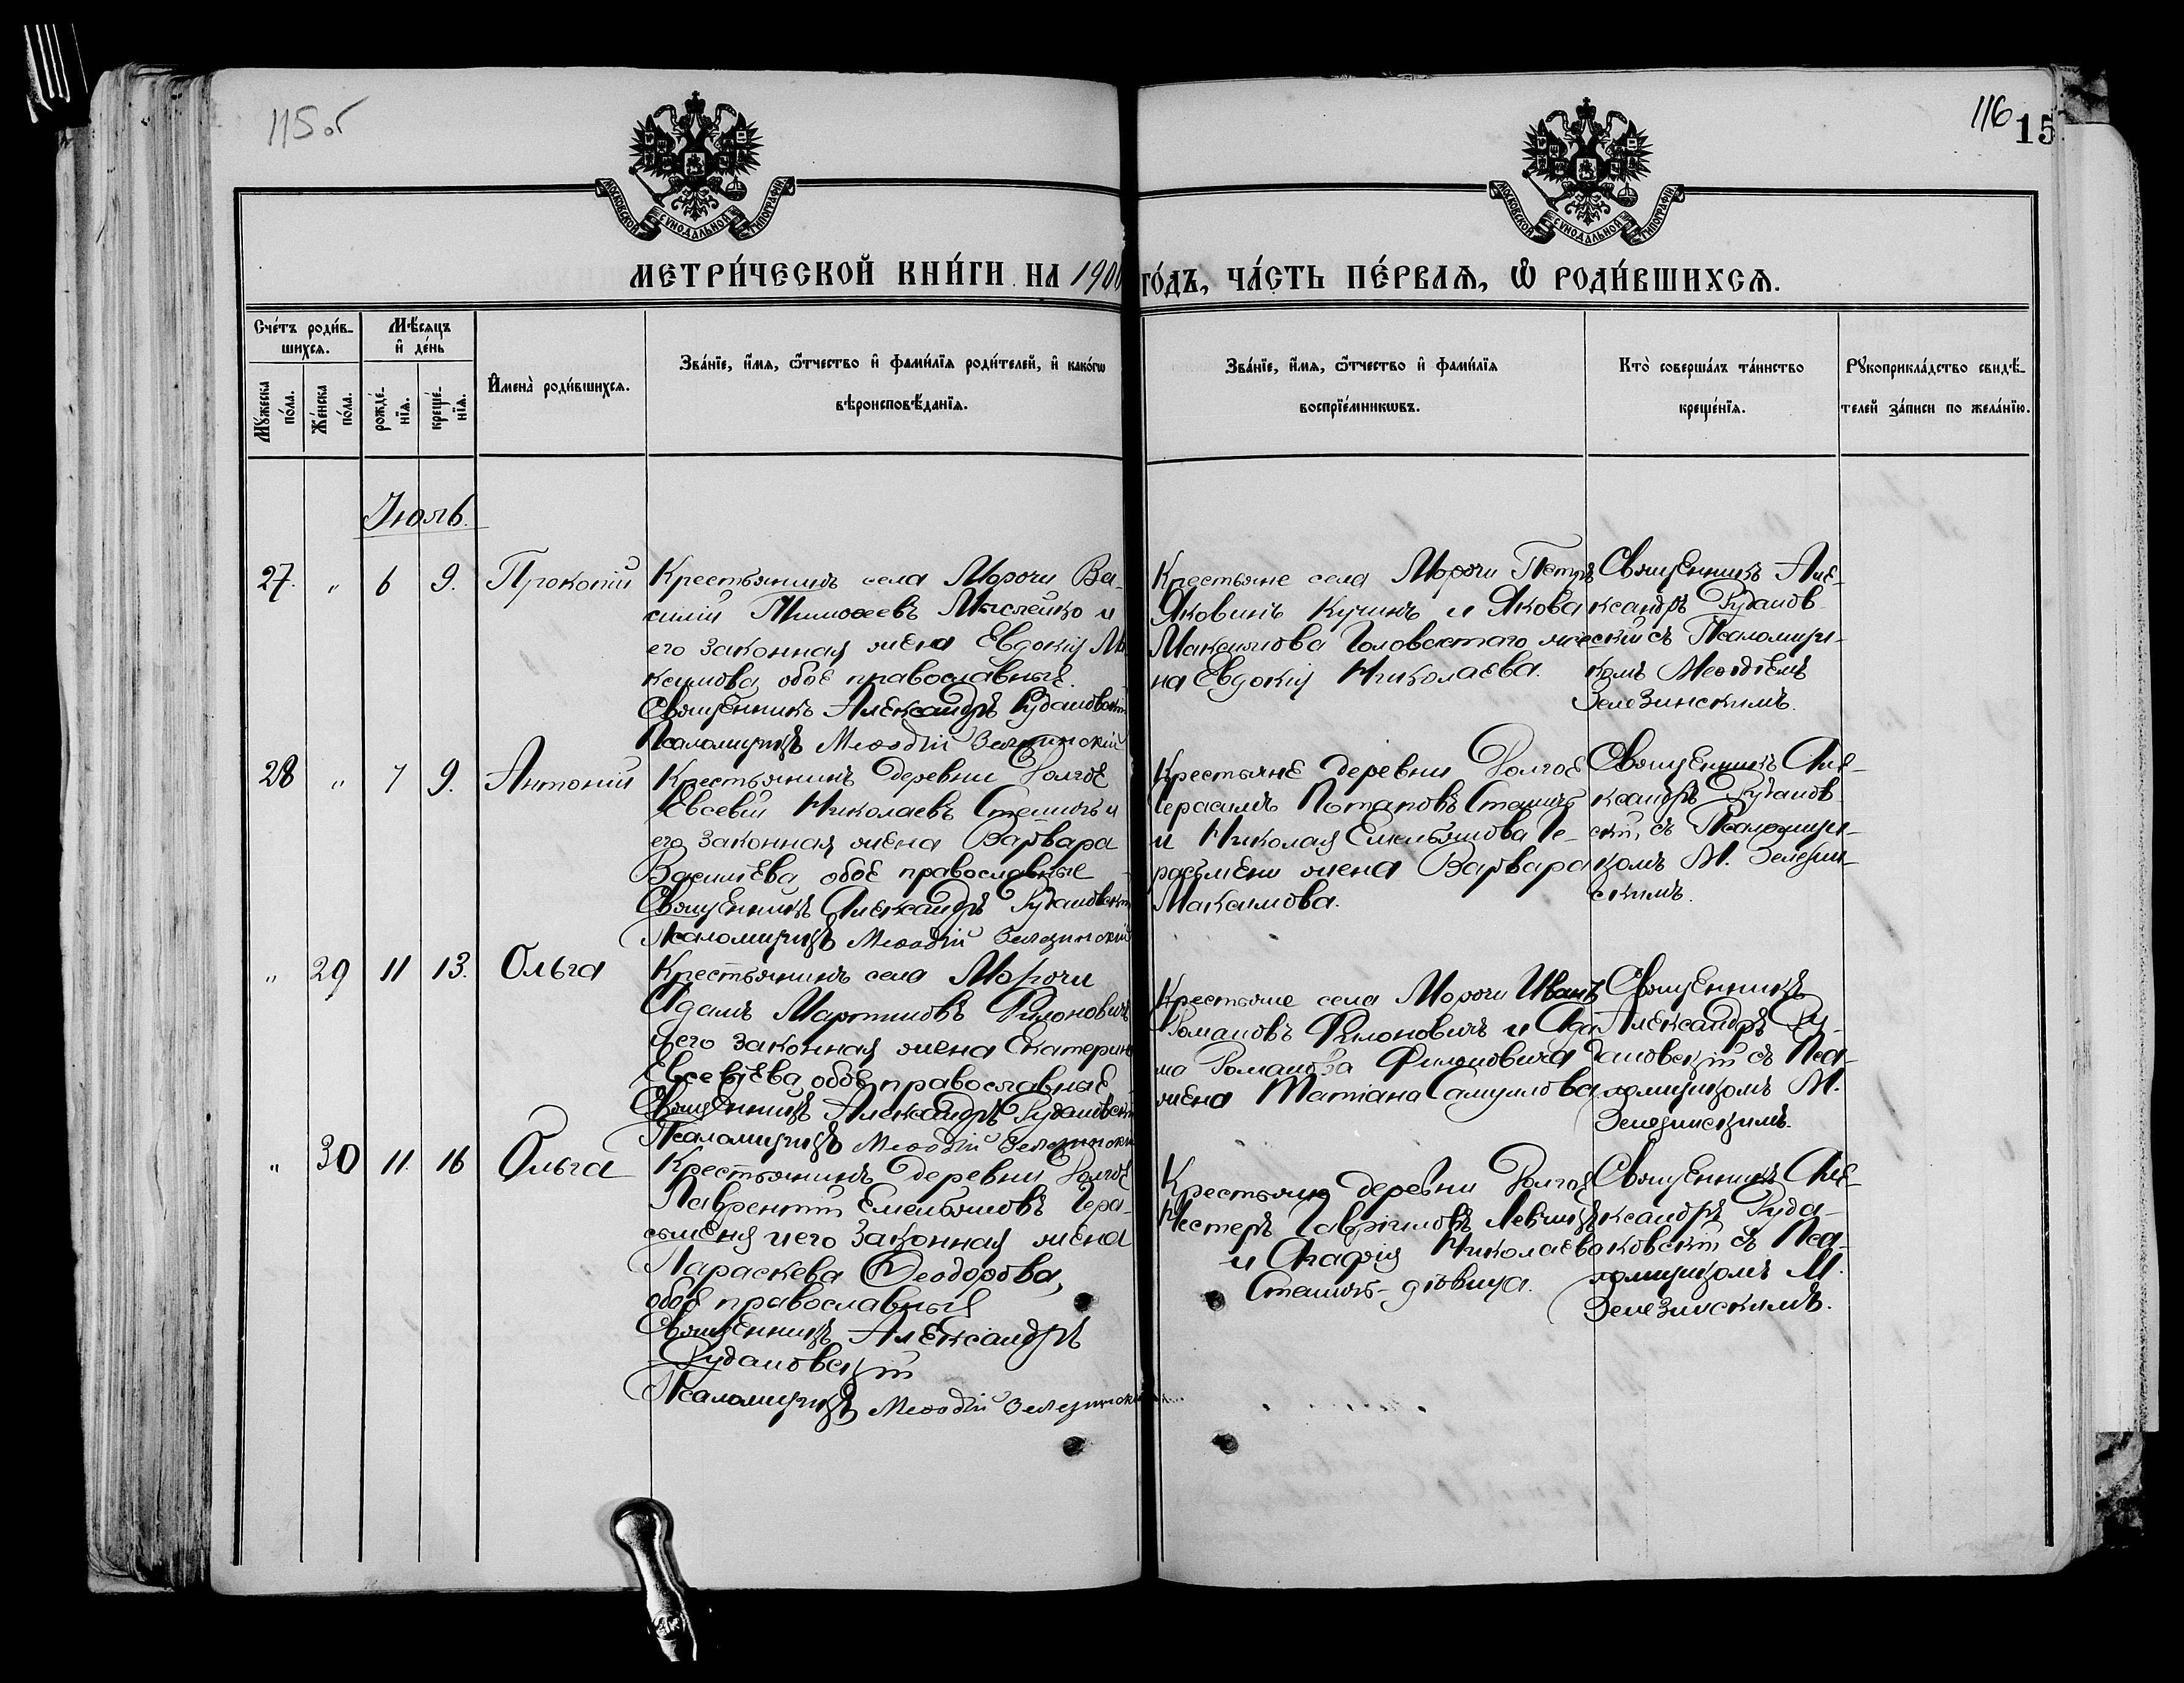 115 об
116
15
МОСКОВСКОЙ СѴНОДАЛЬНОЙ ТИПОГРАФІИ
МОСКОВСКОЙ СѴНОДАЛЬНОЙ ТИПОГРАФІИ
МЕТРИ́ЧЕСКОЙ КНИ́ГИ НА 1900 ГО́ДЪ, ЧА́СТЬ ПЕ́РВАѦ, Ѡ РОДИ́ВШИХСѦ.
Сче́тъ роди́в-
шихсѧ.
Мꙋ́жеска по́ла.
Же́нска по́ла.
Мѣ́сѧцъ
и҆ де́нь
рожде́-
нїѧ.
креще́-
нїѧ.
И҆мена̀ роди́вшихсѧ.
Зва́нїе, и҆́мѧ, ѻ҆́тчество и҆ фами́лїѧ роди́телей, и҆ како́гѡ
вѣроисповѣ́данїѧ.
Зва́нїе, и҆́мѧ, ѻ҆́тчество и҆ фами́лїѧ
воспрїе́мникѡвъ.
Кто̀ соверша́лъ та́инство
креще́нїѧ.
Рꙋкоприкла́дство свидѣ́-
телей за́писи по жела́нїю.
Іюль.
27. " 6 9. Прокопій
Крестьянинъ села Морочи Ва-
силій Тимоѳеевъ Мыслейко и
его законная жена Евдокія Ма
ксимова, обое православные.
Священникъ Александръ Рудановскій
Псаломщикъ Меѳодій Зелезинскій
Крестьяне села Морочи Петръ
Яковинъ Кучинъ и Якова
Максимова Головастаго же
на Евдокія Николаева.
Священникъ Але-
ксандръ Рудановскій
съ Псаломщи-
комъ Меѳодіемъ
Зелезинскимъ.
28 " 7 9. Антоній
Крестьянинъ деревни Долгое
Евсевій Николаевъ Сташъ и
его законная жена Варвара
Васильева обое православные
Священникъ Александръ Рудановскій
Псаломщикъ Меѳодій Зелезинскій
Крестьяне деревни Долгое
Герасимъ Потаповъ Сташъ
и Николая Емельянова Ге-
расимени жена Варвара
Максимова.
Священникъ Але-
ксандръ Рудановскій,
съ Псаломщи-
комъ М. Зелезин-
скимъ.
" 29 11 13. Ольга
Крестьянинъ села Морочи
Адамъ Мартиновъ Филоновичъ
и его законная жена Екатерина
Евсевіева, обое православные
Священникъ Александръ Рудановскій
Псаломщикъ Меѳодій Зелезинскій
Крестьяне села Морочи Иванъ
Романовъ Филоновичъ и Ада-
ма Романова Филоновича
жена Татіана Самуилова
Священникъ
Александръ Ру-
дановскій съ Пса-
ломщикомъ М.
Зелезинскимъ.
" 30 11. 16 Ольга
Крестьянинъ деревни Долгое
Лаврентій Емельяновъ Гера-
сименя и его законная жена
Параскева Ѳеодорова,
обое православные
Священникъ Александръ
Рудановскій
Псаломщикъ Меѳодій Зелезинскій
Крестьяне деревни Долгое
Нестеръ Гавріиловъ Левчикъ
и Агафія Николаева
Сташъ-дѣвица.
Священникъ Але-
ксандръ Руда-
новскій съ Пса-
ломщикомъ М.
Зелезинскимъ.